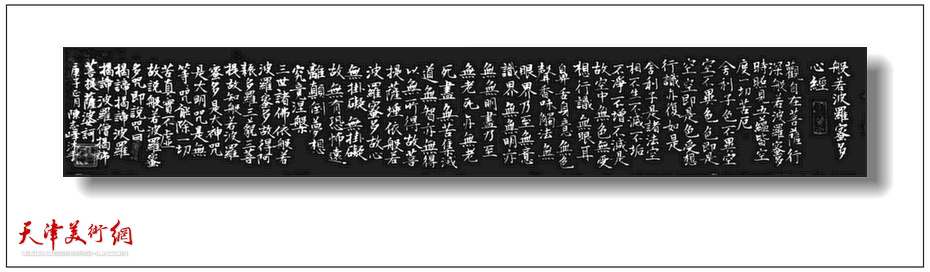 般若波羅蜜多
心經
觀自在菩薩行
深般若波羅蜜多
時照見五蘊皆空
度一切苦厄
舍利子色不異空
空不異色色即是
空空即是色受想
行識亦復如是
舍利子是諸法空
相不生不滅不垢
不淨不增不減是
故空中無色無受
想行識無眼耳
鼻舌身意無色
聲香味觸法無
眼界乃至無意
識界無無明亦
無無明盡乃至
無老死亦無老
死盡無苦集滅
道無智亦無得
以無所得故菩
提薩埵依般若
波羅蜜多故心
無掛礙無掛礙
故無有恐怖遠
離顛倒夢想
究竟涅槃
三世諸佛依般若
波羅蜜多故得阿
耨多羅三藐三菩
提故知般若波羅
蜜多是大神咒
是大明咒是無
等咒能除一切
苦真實不虛
故說般若波羅蜜
多咒即說咒曰
揭諦揭諦波羅
揭諦波羅僧揭諦
菩提薩婆訶
庚子正月
天津美術網